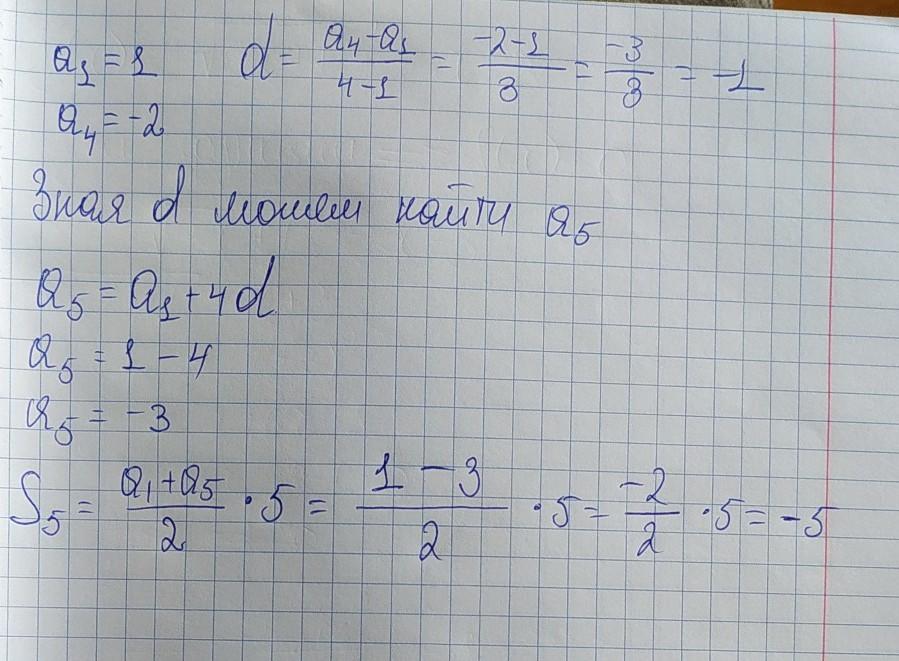 a₁ = 1 d = (a₄ - a₁)/(4 - 1) = (-2 - 1)/3 = -3/3 = -1
a₄ = -2
Зная d можем найти a₅
a₅ = a₁ + 4d
a₅ = 1 - 4
a₅ = -3
S₅ = (a₁ + a₅)/2 · 5 = (1 - 3)/2 · 5 = -2/2 · 5 = -5